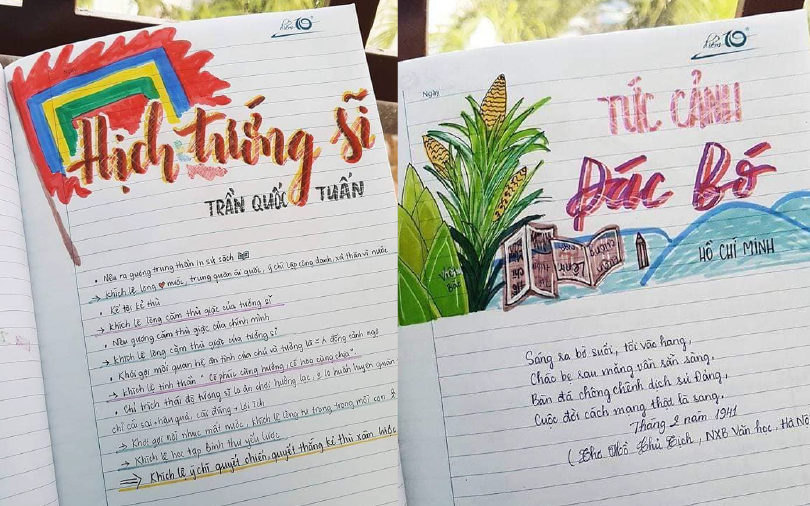 điểm 10
Hịch tướng sĩ
TRẦN QUỐC TUẤN
• Nêu ra gương trung thần in sử sách
→ khích lệ lòng ❤ nước, trung quân ái quốc, ý chí lập công danh, xả thân vì nước
• Kể tội kẻ thù
→ khích lệ lòng căm thù giặc của tướng sĩ
• Nêu gương căm thù giặc của chính mình
→ khích lệ lòng căm thù giặc của tướng sĩ
• Khơi gợi mối quan hệ ân tình của chủ và tướng là = λ đồng cảnh ngộ
→ khích lệ tinh thần "có phúc cùng hưởng, có họa cùng chịu".
• Chỉ trích thái độ tướng sĩ lo ăn chơi hưởng lạc, ko lo huấn luyện quân
chỉ cái sai + hậu quả, cái đúng + lợi ích
→ Khơi gợi nỗi nhục mất nước, khích lệ lòng tự trọng trong mỗi con
→ Khích lệ học tập Binh thư yếu lược
⇒ Khích lệ ý chí quyết chiến, quyết thắng kẻ thù xâm lược
điểm 10
Ngày
TỨC CẢNH
Pác Bó
HỒ CHÍ MINH
Sáng ra bờ suối, tối vào hang,
Cháo bẹ rau măng vẫn sẵn sàng,
Bàn đá chông chênh dịch sử Đảng,
Cuộc đời cách mạng thật là sang.
Tháng 2 năm 1941
(Thơ Hồ Chủ Tịch, NXB Văn học, Hà Nộ